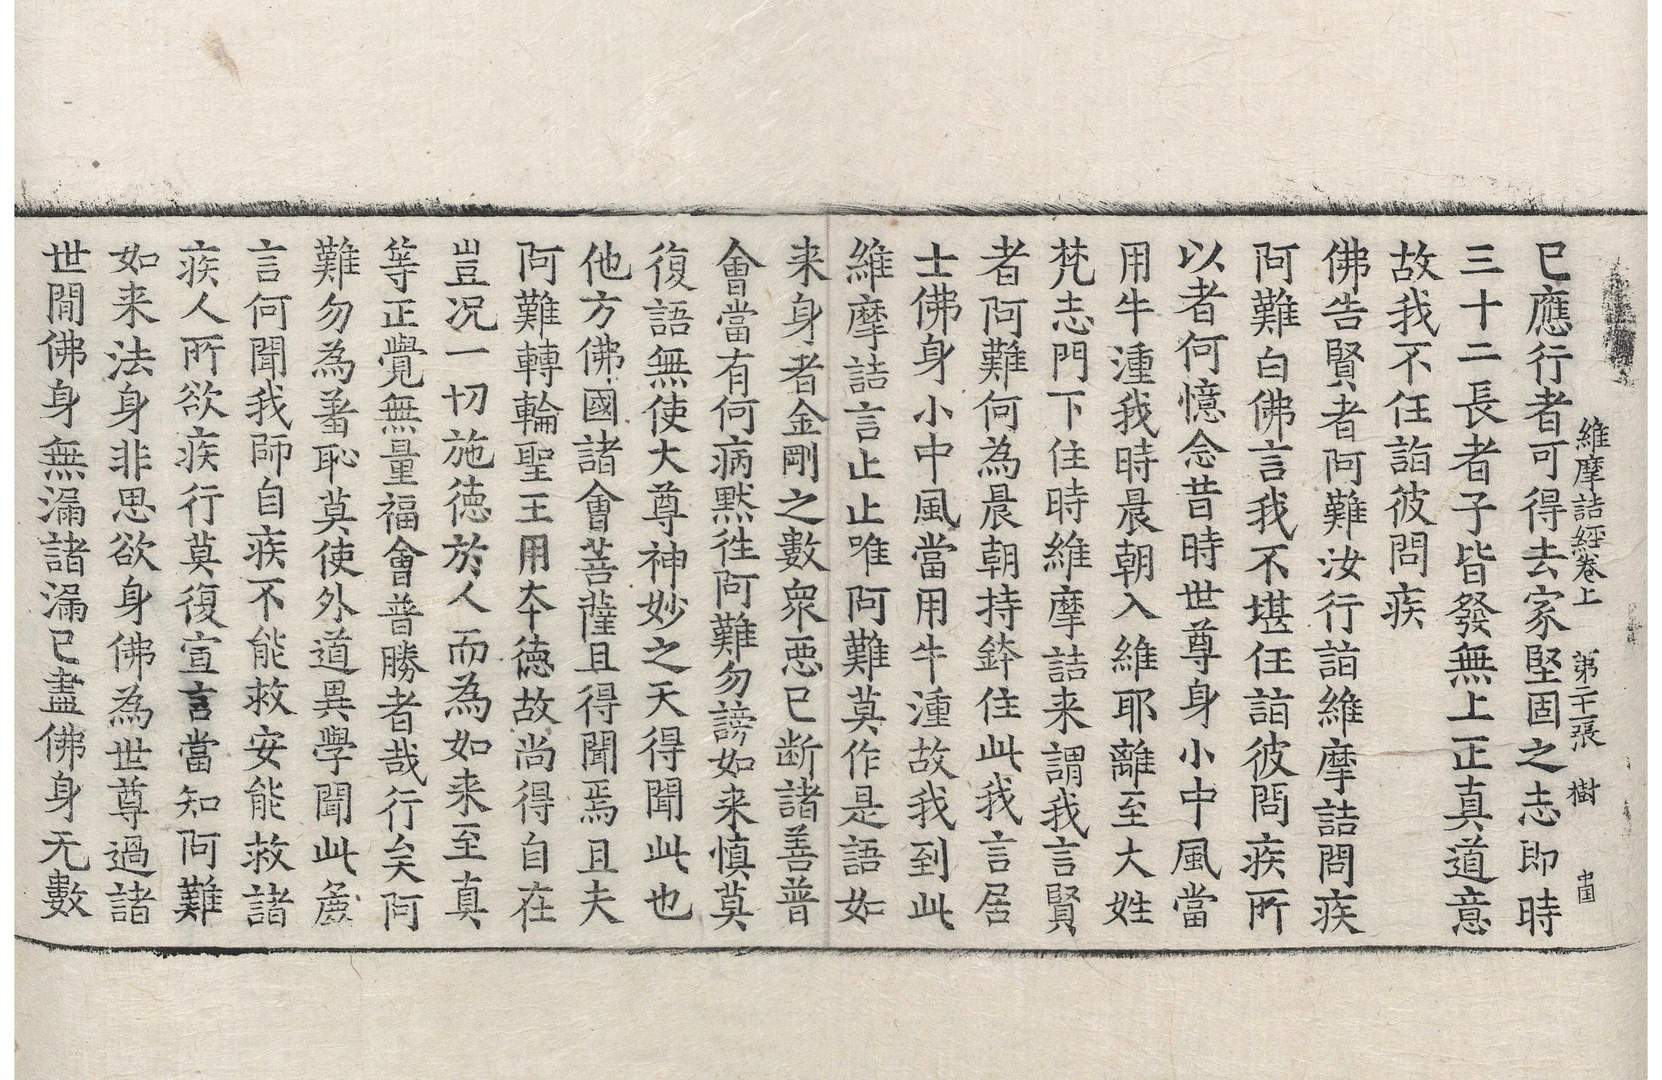 維摩詰經卷上 第二十張 樹 中国
已應行者可得去家堅固之志即時
三十二長者子皆發無上正真道意
故我不任詣彼問疾
佛告賢者阿難汝行詣維摩詰問疾
阿難白佛言我不堪任詣彼問疾所
以者何憶念昔時世尊身小中風當
用牛湩我時晨朝入維耶離至大姓
梵志門下住時維摩詰来謂我言賢
者阿難何為晨朝持鉢住此我言居
士佛身小中風當用牛湩故我到此
維摩詰言止止唯阿難莫作是語如
来身者金剛之數衆惡已断諸善普
會當有何病黙徃阿難勿謗如来慎莫
復語無使大尊神妙之天得聞此也
他方佛國諸會菩薩且得聞焉且夫
阿難轉輪聖王用本德故尚得自在
豈况一切施德於人而為如来至真
等正覺無量福會普勝者哉行矣阿
難勿為羞恥莫使外道異學聞此麁
言何聞我師自疾不能救安能救諸
疾人所欲疾行莫復宣言當知阿難
如来法身非思欲身佛為世尊過諸
世間佛身無漏諸漏已盡佛身无數